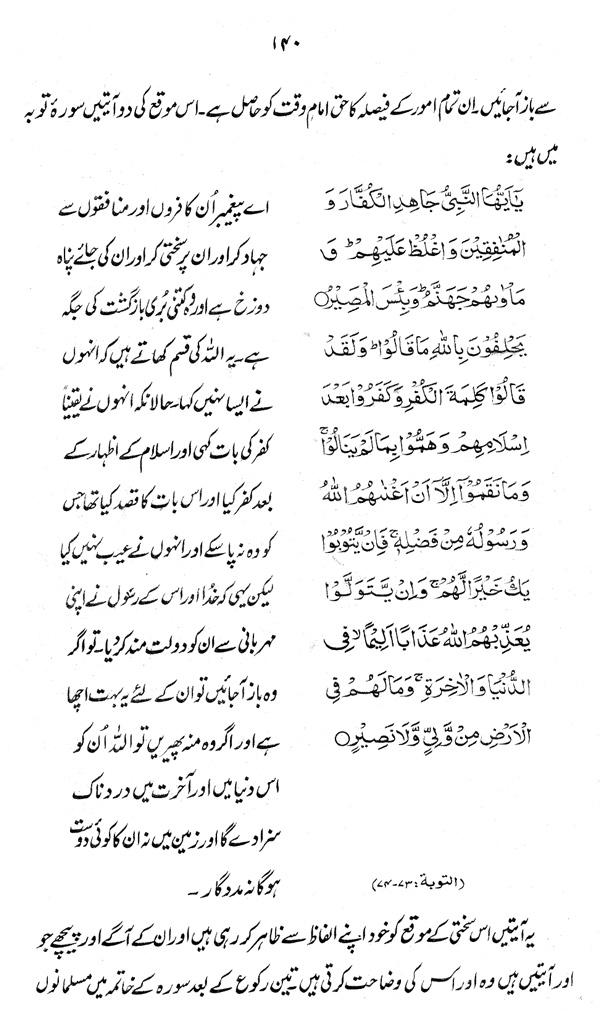 ۱۴۰
سے باز آجائیں۔ ان تمام امور کے فیصلہ کا حق امام وقت کو حاصل ہے۔ اس موقع کی دو آیتیں سورۂ توبہ
میں ہیں:
یٰۤاَیُّهَا النَّبِیُّ جَاهِدِ الْکُفَّارَ وَ
الْمُنٰفِقِیْنَ وَاغْلُظْ عَلَیْهِمْ ؕ وَ
مَاْوٰىهُمْ جَهَنَّمُ ؕ وَبِئْسَ الْمَصِیْرُ ○
یَحْلِفُوْنَ بِاللّٰهِ مَا قَالُوْا ؕ وَلَقَدْ
قَالُوْا کَلِمَةَ الْکُفْرِ وَکَفَرُوْا بَعْدَ
اِسْلَامِهِمْ وَهَمُّوْا بِمَا لَمْ یَنَالُوْا ۚ
وَمَا نَقَمُوْۤا اِلَّاۤ اَنْ اَغْنٰىهُمُ اللّٰهُ
وَرَسُوْلُهٗ مِنْ فَضْلِهٖ ۚ فَاِنْ یَّتُوْبُوْا
یَكُ خَیْرًا لَّهُمْ ۚ وَاِنْ یَّتَوَلَّوْا
یُعَذِّبْهُمُ اللّٰهُ عَذَابًا اَلِیْمًا ۙ فِی
الدُّنْیَا وَالْاٰخِرَةِ ۚ وَمَا لَهُمْ فِی
الْاَرْضِ مِنْ وَّلِیٍّ وَّلَا نَصِیْرٍ ○
(التوبة: ۷۳-۷۴)
اے پیغمبر اُن کافروں اور منافقوں سے
جہاد کر اور ان پر سختی کر اور ان کی جائے پناہ
دوزخ ہے اور وہ کتنی بُری بازگشت کی جگہ
ہے۔ یہ اللہ کی قسم کھاتے ہیں کہ انہوں
نے ایسا نہیں کہا۔ حالانکہ انہوں نے یقیناً
کفر کی بات کہی اور اسلام کے اظہار کے
بعد کفر کیا اور اس بات کا قصد کیا تھا جس
کو وہ نہ پا سکے اور انہوں نے عیب نہیں کیا
لیکن یہی کہ خُدا اور اس کے رسُول نے اپنی
مہربانی سے ان کو دولت مند کر دیا۔ تو اگر
وہ باز آجائیں تو ان کے لئے یہ بہت اچھا
ہے اور اگر وہ منہ پھیریں تو اللہ اُن کو
اس دنیا میں اور آخرت میں دردناک
سزا دے گا اور زمین میں نہ ان کا کوئی دوست
ہوگا نہ مددگار ۔
یہ آیتیں اس سختی کے موقع کو خود اپنے الفاظ سے ظاہر کر رہی ہیں اور ان کے آگے اور پیچھے جو
اور آیتیں ہیں وہ اور اس کی وضاحت کرتی ہیں۔ تین رکوع کے بعد سورہ کے خاتمہ میں مسلمانوں